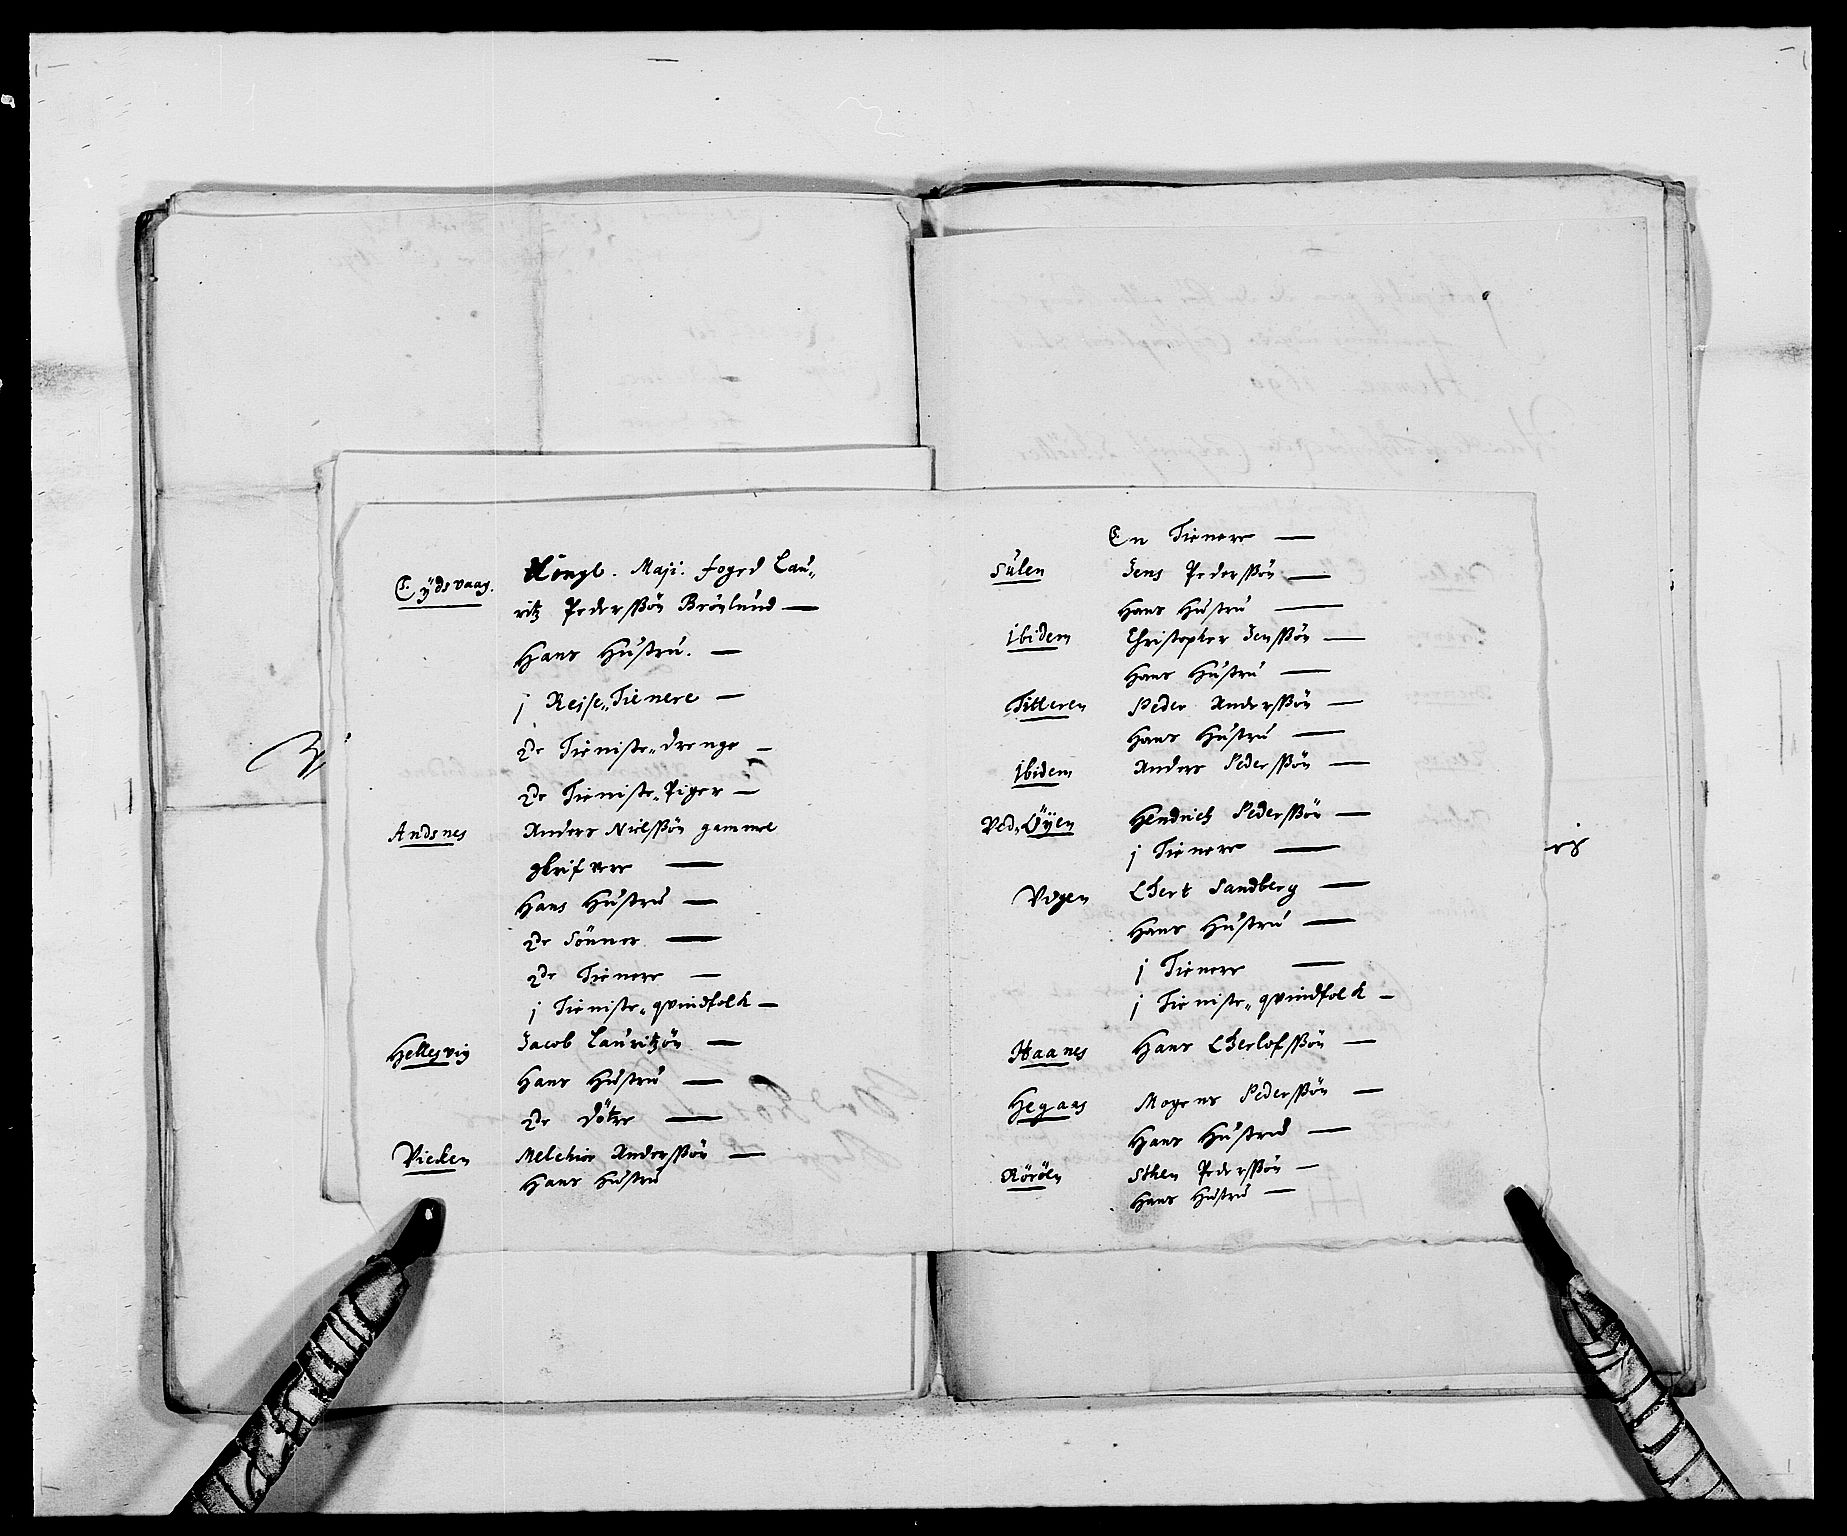 Eÿdsvaag. Kongl. Maji. foged Lau„
ritz Pederßøn Brønlund —
Hans Hustru. —
j Reise„Tienere —
2de Tieniste„drenge —
2de Tieniste„Piger —
Andsnes Anders Nielßøn gammel
Hans Hustru —
2de Sønner —
2de Tienere —
j Tieniste„qvindfolk —
Hellesvig Jacob Lauritzøn —
Hans Hustru —
2de Døtre —
Vieken Melchior Anderßøn —
Hans Hustru
En Tienere —
Sulen Jens Pederßøn —
Hans Hustru —
Ibidem Christopher Jenßøn —
Hans Hustru —
Titteren Peder Anderßøn —
Hans Hustru —
Ibidem Anders Pederßøn —
Ved„Øÿen Hendrich Pederßøn —
j Tienere —
Vogen Ebert Sandberg —
Hans Hustru —
j Tienere —
j Tieniste„qvindfolk —
Haanes Hans —
Hegaas Mogens Pederßøn —
Hans Hustrue —
Rörölen Sthen Pederßøn —
Hans Hustru —